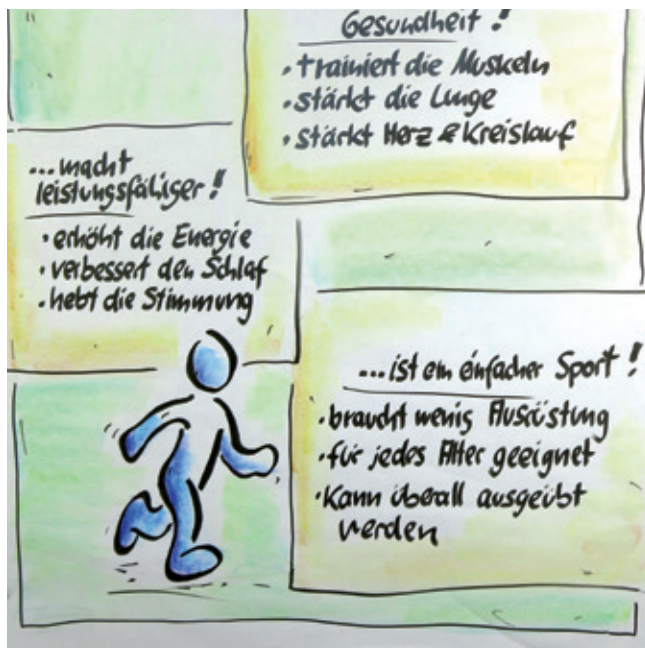 Gesundheit!
• trainiert die Muskeln
• stärkt die Lunge
• stärkt Herz & Kreislauf
...macht
leistungsfähiger!
• erhöht die Energie
• verbessert den Schlaf
• hebt die Stimmung
...ist ein einfacher Sport!
• braucht wenig Ausrüstung
• für jedes Alter geeignet
• Kann überall ausgeübt
werden